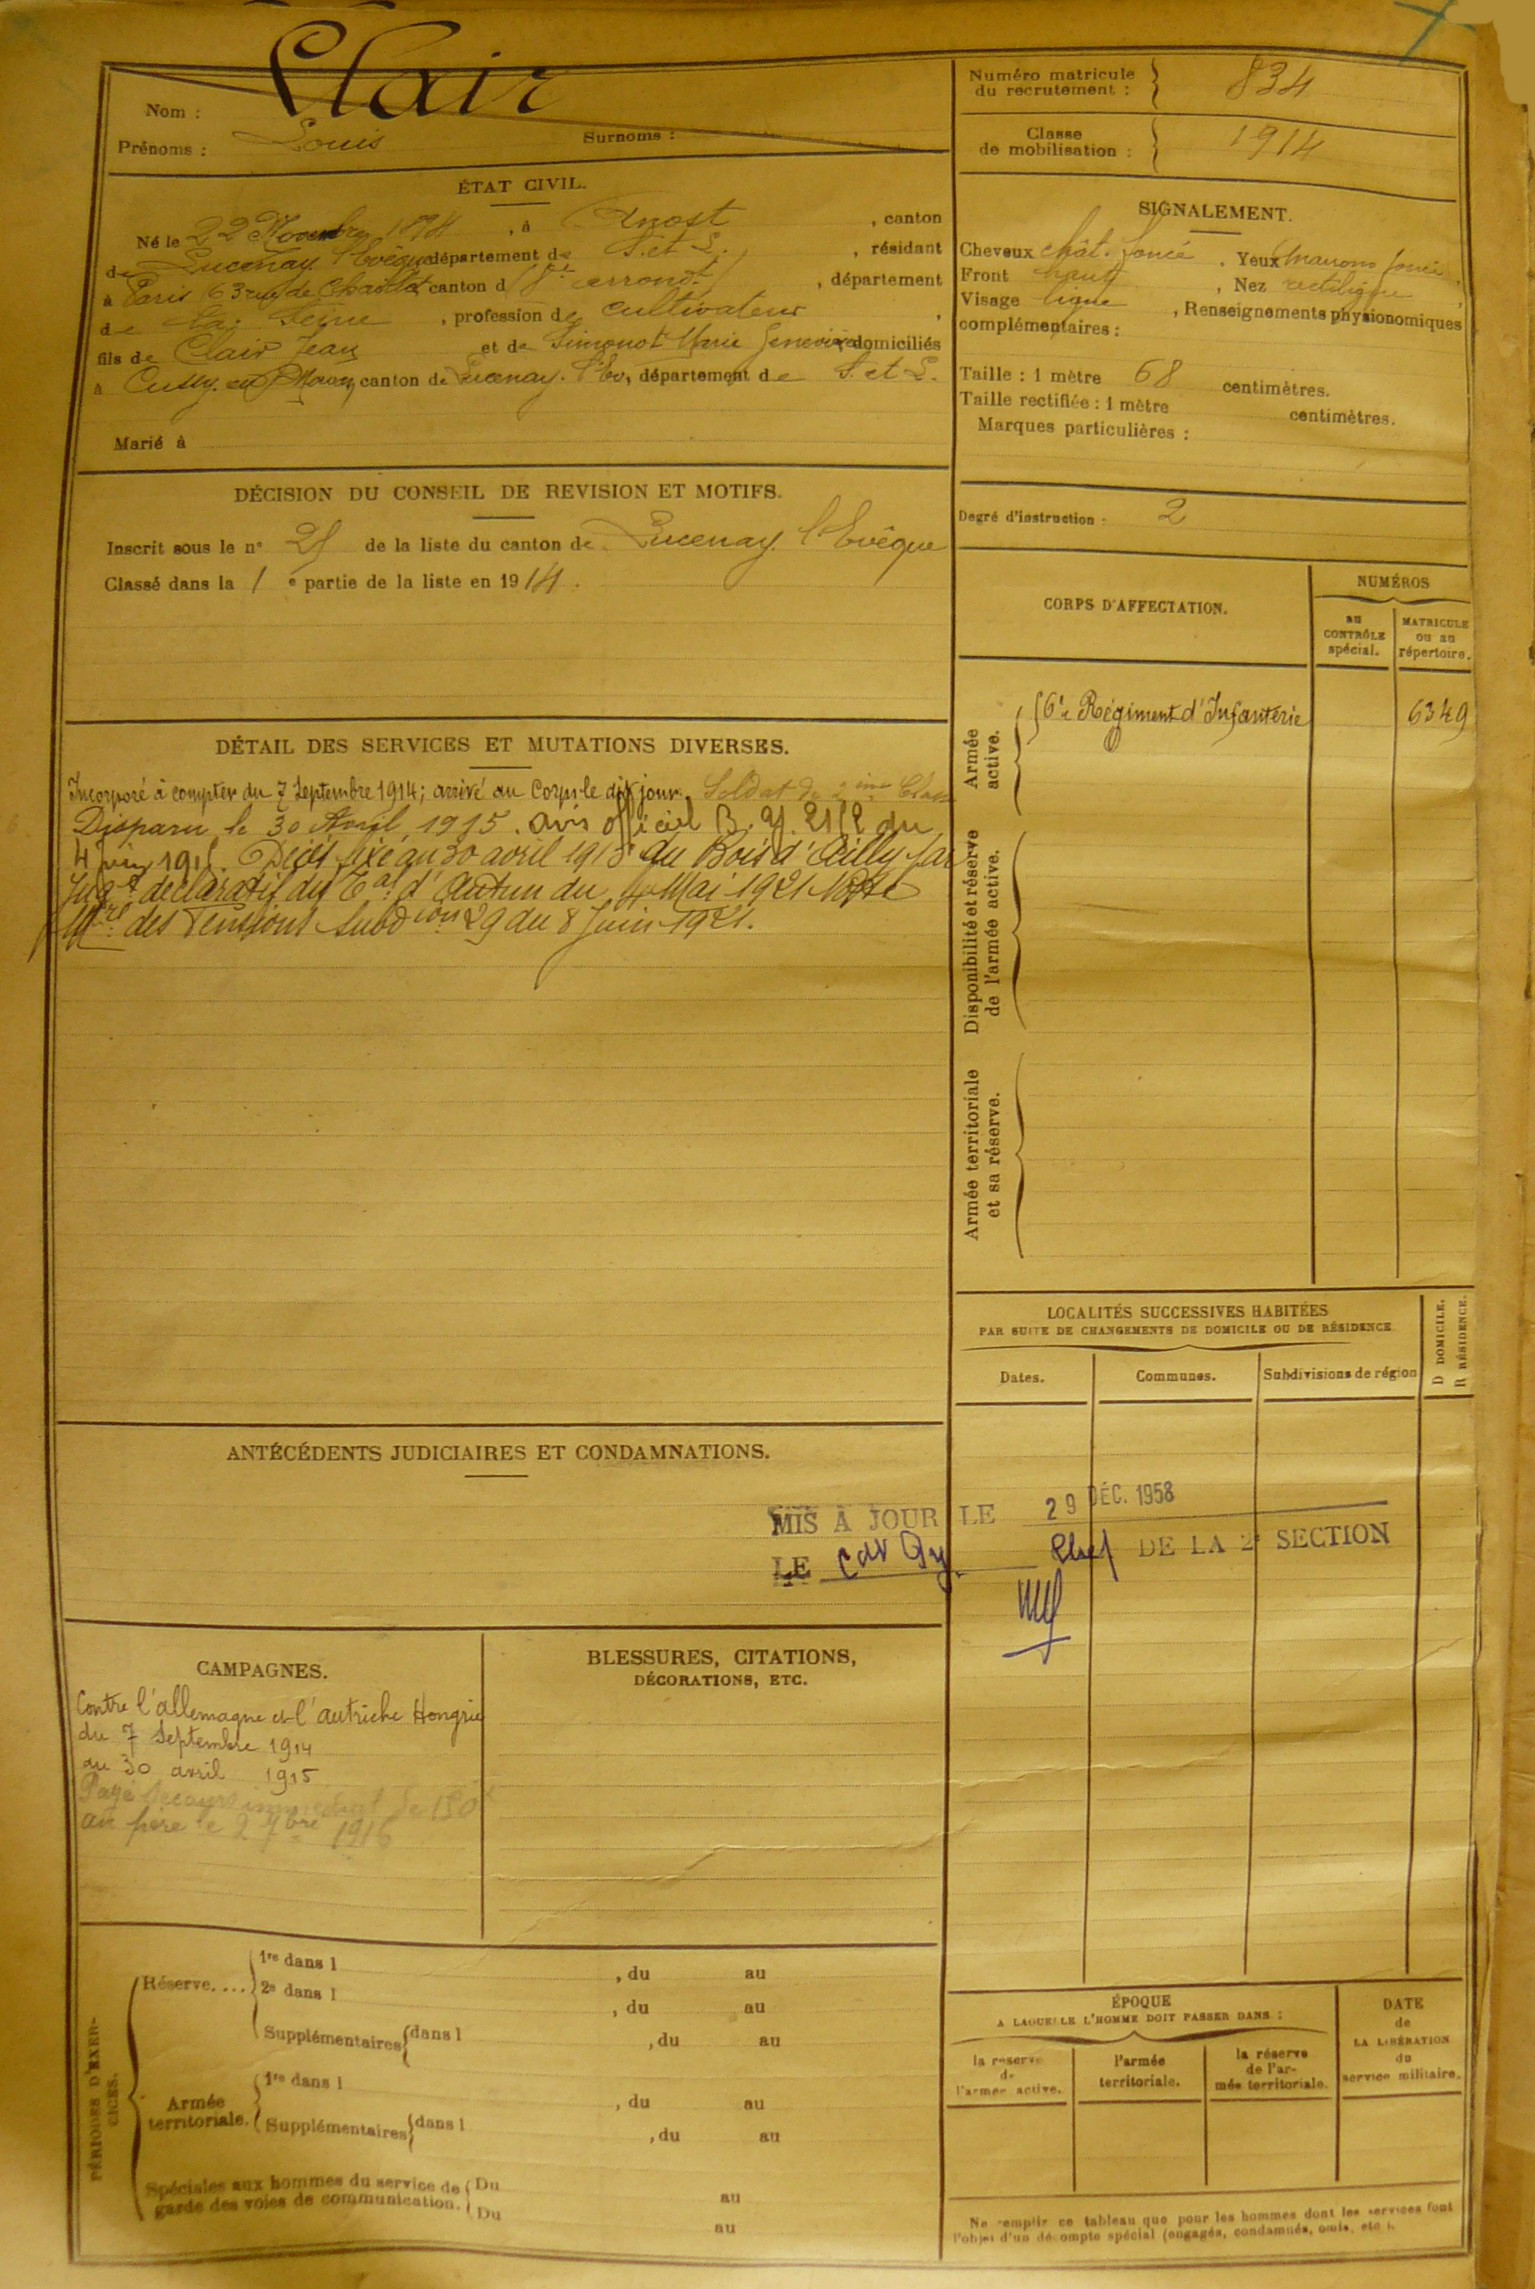 Clair
Nom :
Prénoms : Louis Surnoms :
ÉTAT CIVIL.
Né le 22 Novembre 1894, à Anost, canton
de Lucenay l'Evêque département de S. et L., résidant
à Paris 63 rue de Chaillot canton d arrondt, département
de La Seine, profession de cultivateur,
fils de Clair Jean et de Simonot Marie Geneviève domiciliés
à Cussy en Morvan, canton de Lucenay l'Ev, département de S. et L.
Marié à
DÉCISION DU CONSEIL DE REVISION ET MOTIFS.
Inscrit sous le n° de la liste du canton de Lucenay l'Evêque
Classé dans la 1e partie de la liste en 1914.
DÉTAIL DES SERVICES ET MUTATIONS DIVERSES.
Incorporé à compter du 7 Septembre 1914; arrivé au Corps le dit jour. Soldat de 2ème Classe
Disparu le 30 Avril 1915. avis officiel B. du
4 juin 1915. Décès fixé au 30 avril 1915 au Bois d'Ailly par
Jugt déclaratif du Tal d'Autun du 4 Mai 1921
des Pensions Subdion 29 du 8 Juin 1921.
ANTÉCÉDENTS JUDICIAIRES ET CONDAMNATIONS.
MIS À JOUR LE 29 DÉC. 1958
LE Chef DE LA 2e SECTION
CAMPAGNES.
Contre l'allemagne et l'autriche Hongrie
du 7 Septembre 1914
au 30 avril 1915
Payé secours immédiat de 150f
au père le 2 7bre 1916
BLESSURES, CITATIONS,
DÉCORATIONS, ETC.
PÉRIODES D'EXER-
CICES.
Réserve....
1re dans l , du au
2e dans l , du au
Supplémentaires dans l , du au
Armée
territoriale.
1re dans l , du au
Supplémentaires dans l , du au
Spéciales aux hommes du service de
garde des voies de communication.
Du au
Du au
Numéro matricule
du recrutement : 834
Classe
de mobilisation : 1914
SIGNALEMENT.
Cheveux chât. foncé. Yeux marrons foncé,
Front haut, Nez rectiligne,
Visage long, Renseignements physionomiques
complémentaires :
Taille : 1 mètre 68 centimètres.
Taille rectifiée : 1 mètre centimètres.
Marques particulières :
Degré d'instruction : 2
CORPS D'AFFECTATION.
NUMÉROS
au
CONTRÔLE
spécial.
MATRICULE
ou au
répertoire.
Armée
active.
Régiment d'Infanterie 6349
Disponibilité et réserve
de l'armée active.
Armée territoriale
et sa réserve.
LOCALITÉS SUCCESSIVES HABITÉES
PAR SUITE DE CHANGEMENTS DE DOMICILE OU DE RÉSIDENCE
D DOMICILE.
R RÉSIDENCE.
Dates. Communes. Subdivisions de région
ÉPOQUE
A LAQUELLE L'HOMME DOIT PASSER DANS :
la réserve
de
l'armée active.
l'armée
territoriale.
la réserve
de l'ar-
mée territoriale.
DATE
de
LA LIBÉRATION
du
service militaire.
Ne remplir ce tableau que pour les hommes dont les services font
l'objet d'un décompte spécial (engagés, condamnés, omis, etc.).